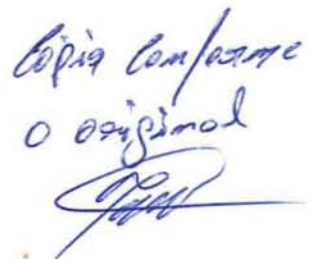 Cópia Conforme
o original